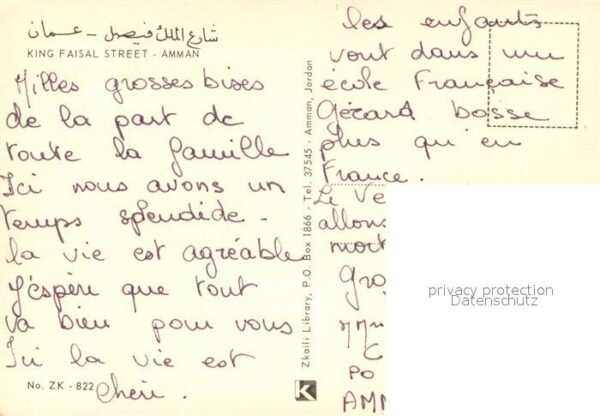 شارع الملك فيصل - عمان
KING FAISAL STREET - AMMAN
Milles grosses bises
de la part de
toute la famille
Ici nous avons un
temps splendide -
la vie est agréable
J'espère que tout
va bien pour vous
Ici la vie est
chère.
No. ZK - 822
Zkaili Library, P.O. Box 1866 - Tel. 37545 - Amman, Jordan
K
les enfants
vont dans une
école Française
Gérard bosse
plus qu'en
France.
Le Ve
allons
mort
Gro
PO
AMM
privacy protection
Datenschutz